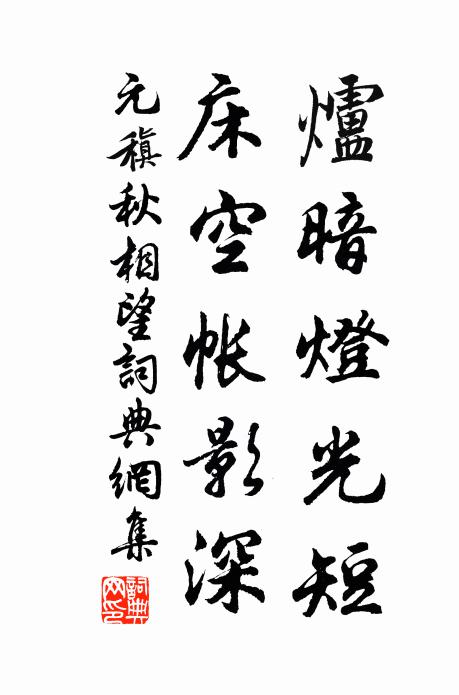 爐暗燈光短
床空帐影深
元稹秋相望詞典網集
詞典网印